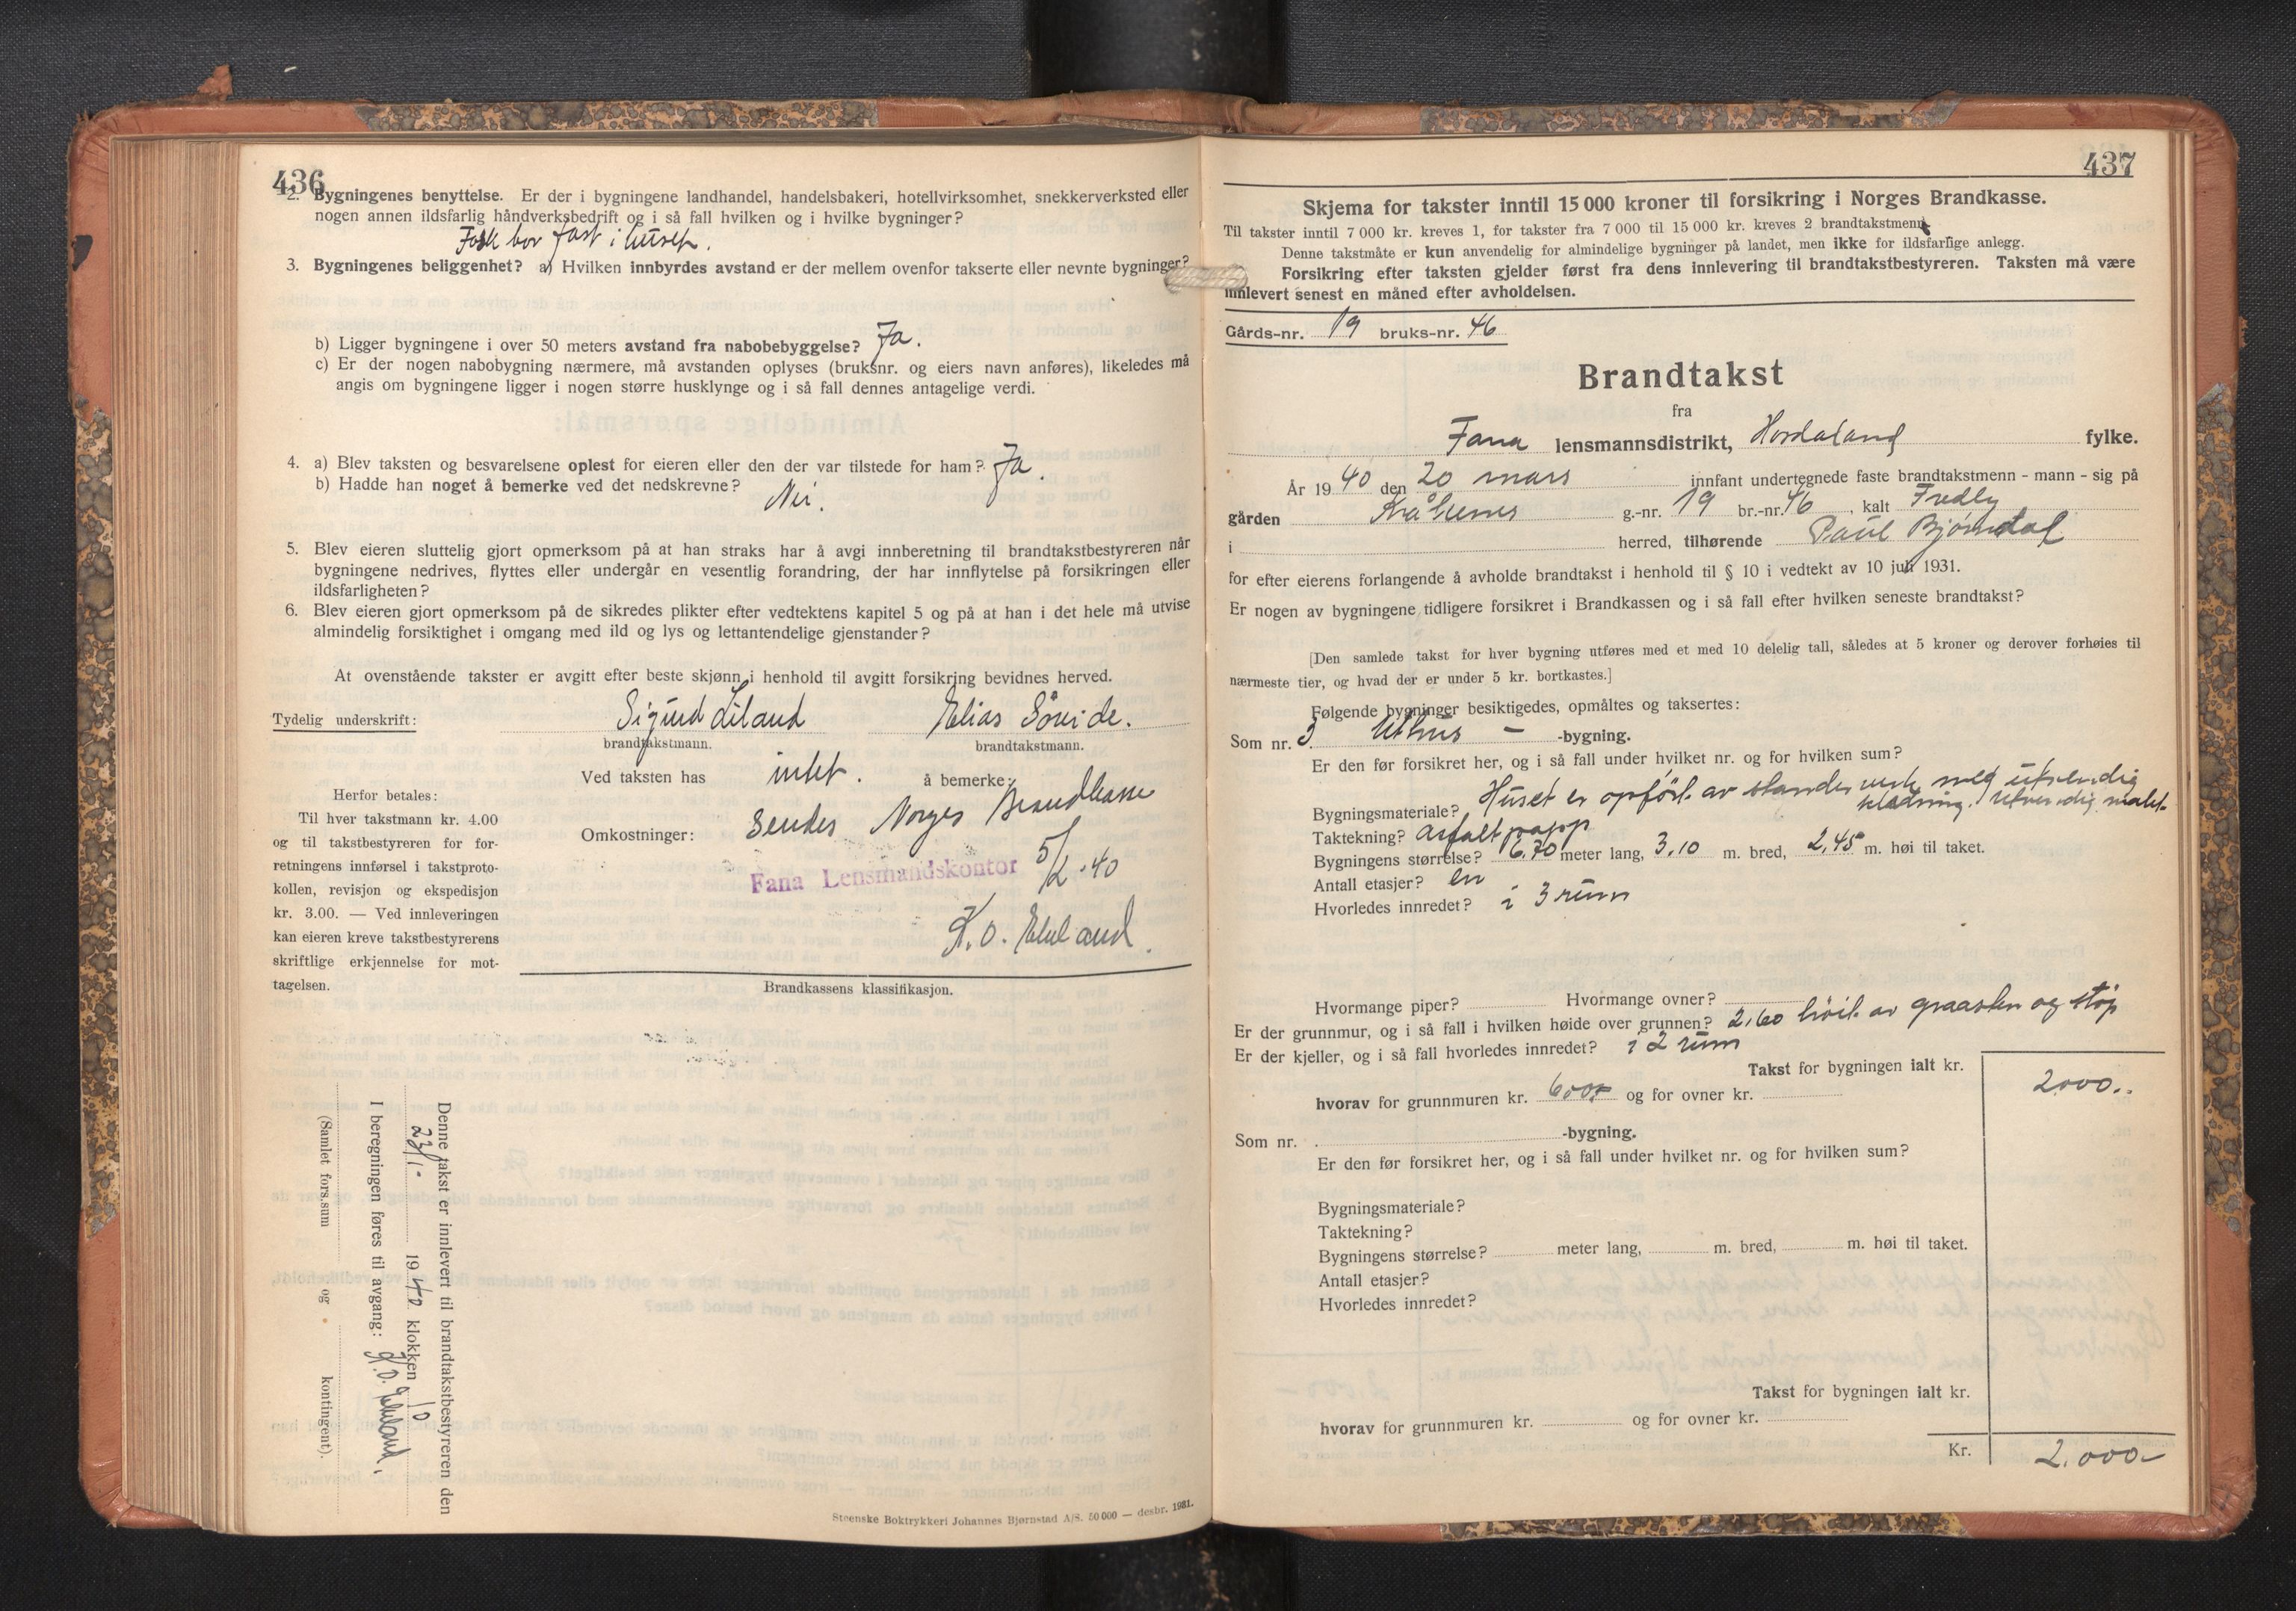 436
2. Bygningenes benyttelse. Er der i bygningene landhandel, handelsbakeri, hotellvirksomhet, snekkerverksted eller
nogen annen ildsfarlig håndverksbedrift og i så fall hvilken og i hvilke bygninger?
Folk bor fast i huset.
3. Bygningenes beliggenhet? a) Hvilken innbyrdes avstand er der mellem ovenfor takserte eller nevnte bygninger?
b) Ligger bygningene i over 50 meters avstand fra nabobebyggelse? Ja.
c) Er der nogen nabobygning nærmere, må avstanden oplyses (bruksnr. og eiers navn anføres), likeledes må
angis om bygningene ligger i nogen større husklynge og i så fall dennes antagelige verdi.
4. a) Blev taksten og besvarelsene oplest for eieren eller den der var tilstede for ham? Ja.
b) Hadde han noget å bemerke ved det nedskrevne? Nei.
5. Blev eieren sluttelig gjort opmerksom på at han straks har å avgi innberetning til brandtakstbestyreren når
bygningene nedrives, flyttes eller undergår en vesentlig forandring, der har innflytelse på forsikringen eller
ildsfarligheten?
6. Blev eieren gjort opmerksom på de sikredes plikter efter vedtektens kapitel 5 og på at han i det hele må utvise
almindelig forsiktighet i omgang med ild og lys og lettantendelige gjenstander?
At ovenstående takster er avgitt efter beste skjønn i henhold til avgitt forsikring bevidnes herved.
Tydelig underskrift: Sigurd Liland Elias Søvide.
brandtakstmann. brandtakstmann.
Ved taksten has intet. å bemerke:
Omkostninger: Sendes Norges Brandkasse
Fana Lensmandskontor 5/2.40
K.O. Ekeland.
Herfor betales:
Til hver takstmann kr. 4.00
og til takstbestyreren for for-
retningens innførsel i takstproto-
kollen, revisjon og ekspedisjon
kr. 3.00. — Ved innleveringen
kan eieren kreve takstbestyrerens
skriftlige erkjennelse for mot-
tagelsen.
Brandkassens klassifikasjon.
Denne takst er innlevert til brandtakstbestyreren den
23/1- 1940 klokken 10
I beregningen føres til avgang: K.O. Ekeland.
(Samlet fors.sum og kontingent).
Steenske Boktrykkeri Johannes Bjørnstad A/S. 50 000 — desbr. 1931.
437
Skjema for takster inntil 15 000 kroner til forsikring i Norges Brandkasse.
Til takster inntil 7 000 kr. kreves 1, for takster fra 7 000 til 15 000 kr. kreves 2 brandtakstmenn.
Denne takstmåte er kun anvendelig for almindelige bygninger på landet, men ikke for ildsfarlige anlegg.
Forsikring efter taksten gjelder først fra dens innlevering til brandtakstbestyreren. Taksten må være
innlevert senest en måned efter avholdelsen.
Gårds-nr. 19 bruks-nr. 46
Brandtakst
fra
Fana lensmannsdistrikt, Hordaland fylke.
År 1940 den 20 mars innfant undertegnede faste brandtakstmenn - mann - sig på
gården Kråkenes g.-nr. 19 br.-nr. 46, kalt Fredly
i herred, tilhørende Paul Bjørndal
for efter eierens forlangende å avholde brandtakst i henhold til § 10 i vedtekt av 10 juli 1931.
Er nogen av bygningene tidligere forsikret i Brandkassen og i så fall efter hvilken seneste brandtakst?
[Den samlede takst for hver bygning utføres med et med 10 delelig tall, således at 5 kroner og derover forhøies til
nærmeste tier, og hvad der er under 5 kr. bortkastes.]
Følgende bygninger besiktigedes, opmåltes og taksertes:
Som nr. 3 Uthus - -bygning.
Er den før forsikret her, og i så fall under hvilket nr. og for hvilken sum?
Bygningsmateriale? Huset er opført av standerverk med utvendig
kledning. Utvendig malt.
Taktekning? Asfaltpapp
Bygningens størrelse? 6,70 meter lang, 3,10 m. bred, 2,45 m. høi til taket.
Antall etasjer? en
Hvorledes innredet? i 3 rum
Hvormange piper? Hvormange ovner?
Er der grunnmur, og i så fall i hvilken høide over grunnen? 2,60 höit av graasten og støp
Er der kjeller, og i så fall hvorledes innredet? i 2 rum
Takst for bygningen ialt kr. 2000..
hvorav for grunnmuren kr. 600,- og for ovner kr.
Som nr. -bygning.
Er den før forsikret her, og i så fall under hvilket nr. og for hvilken sum?
Bygningsmateriale?
Taktekning?
Bygningens størrelse? meter lang, m. bred, m. høi til taket.
Antall etasjer?
Hvorledes innredet?
Takst for bygningen ialt kr.
hvorav for grunnmuren kr. og for ovner kr.
Kr. 2.000-